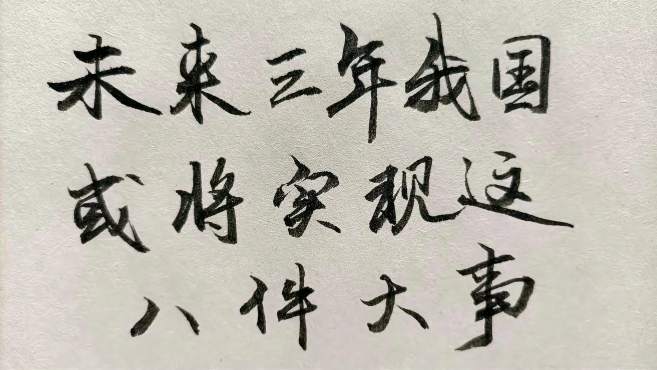 未来三年我国
或将实现这
八件大事